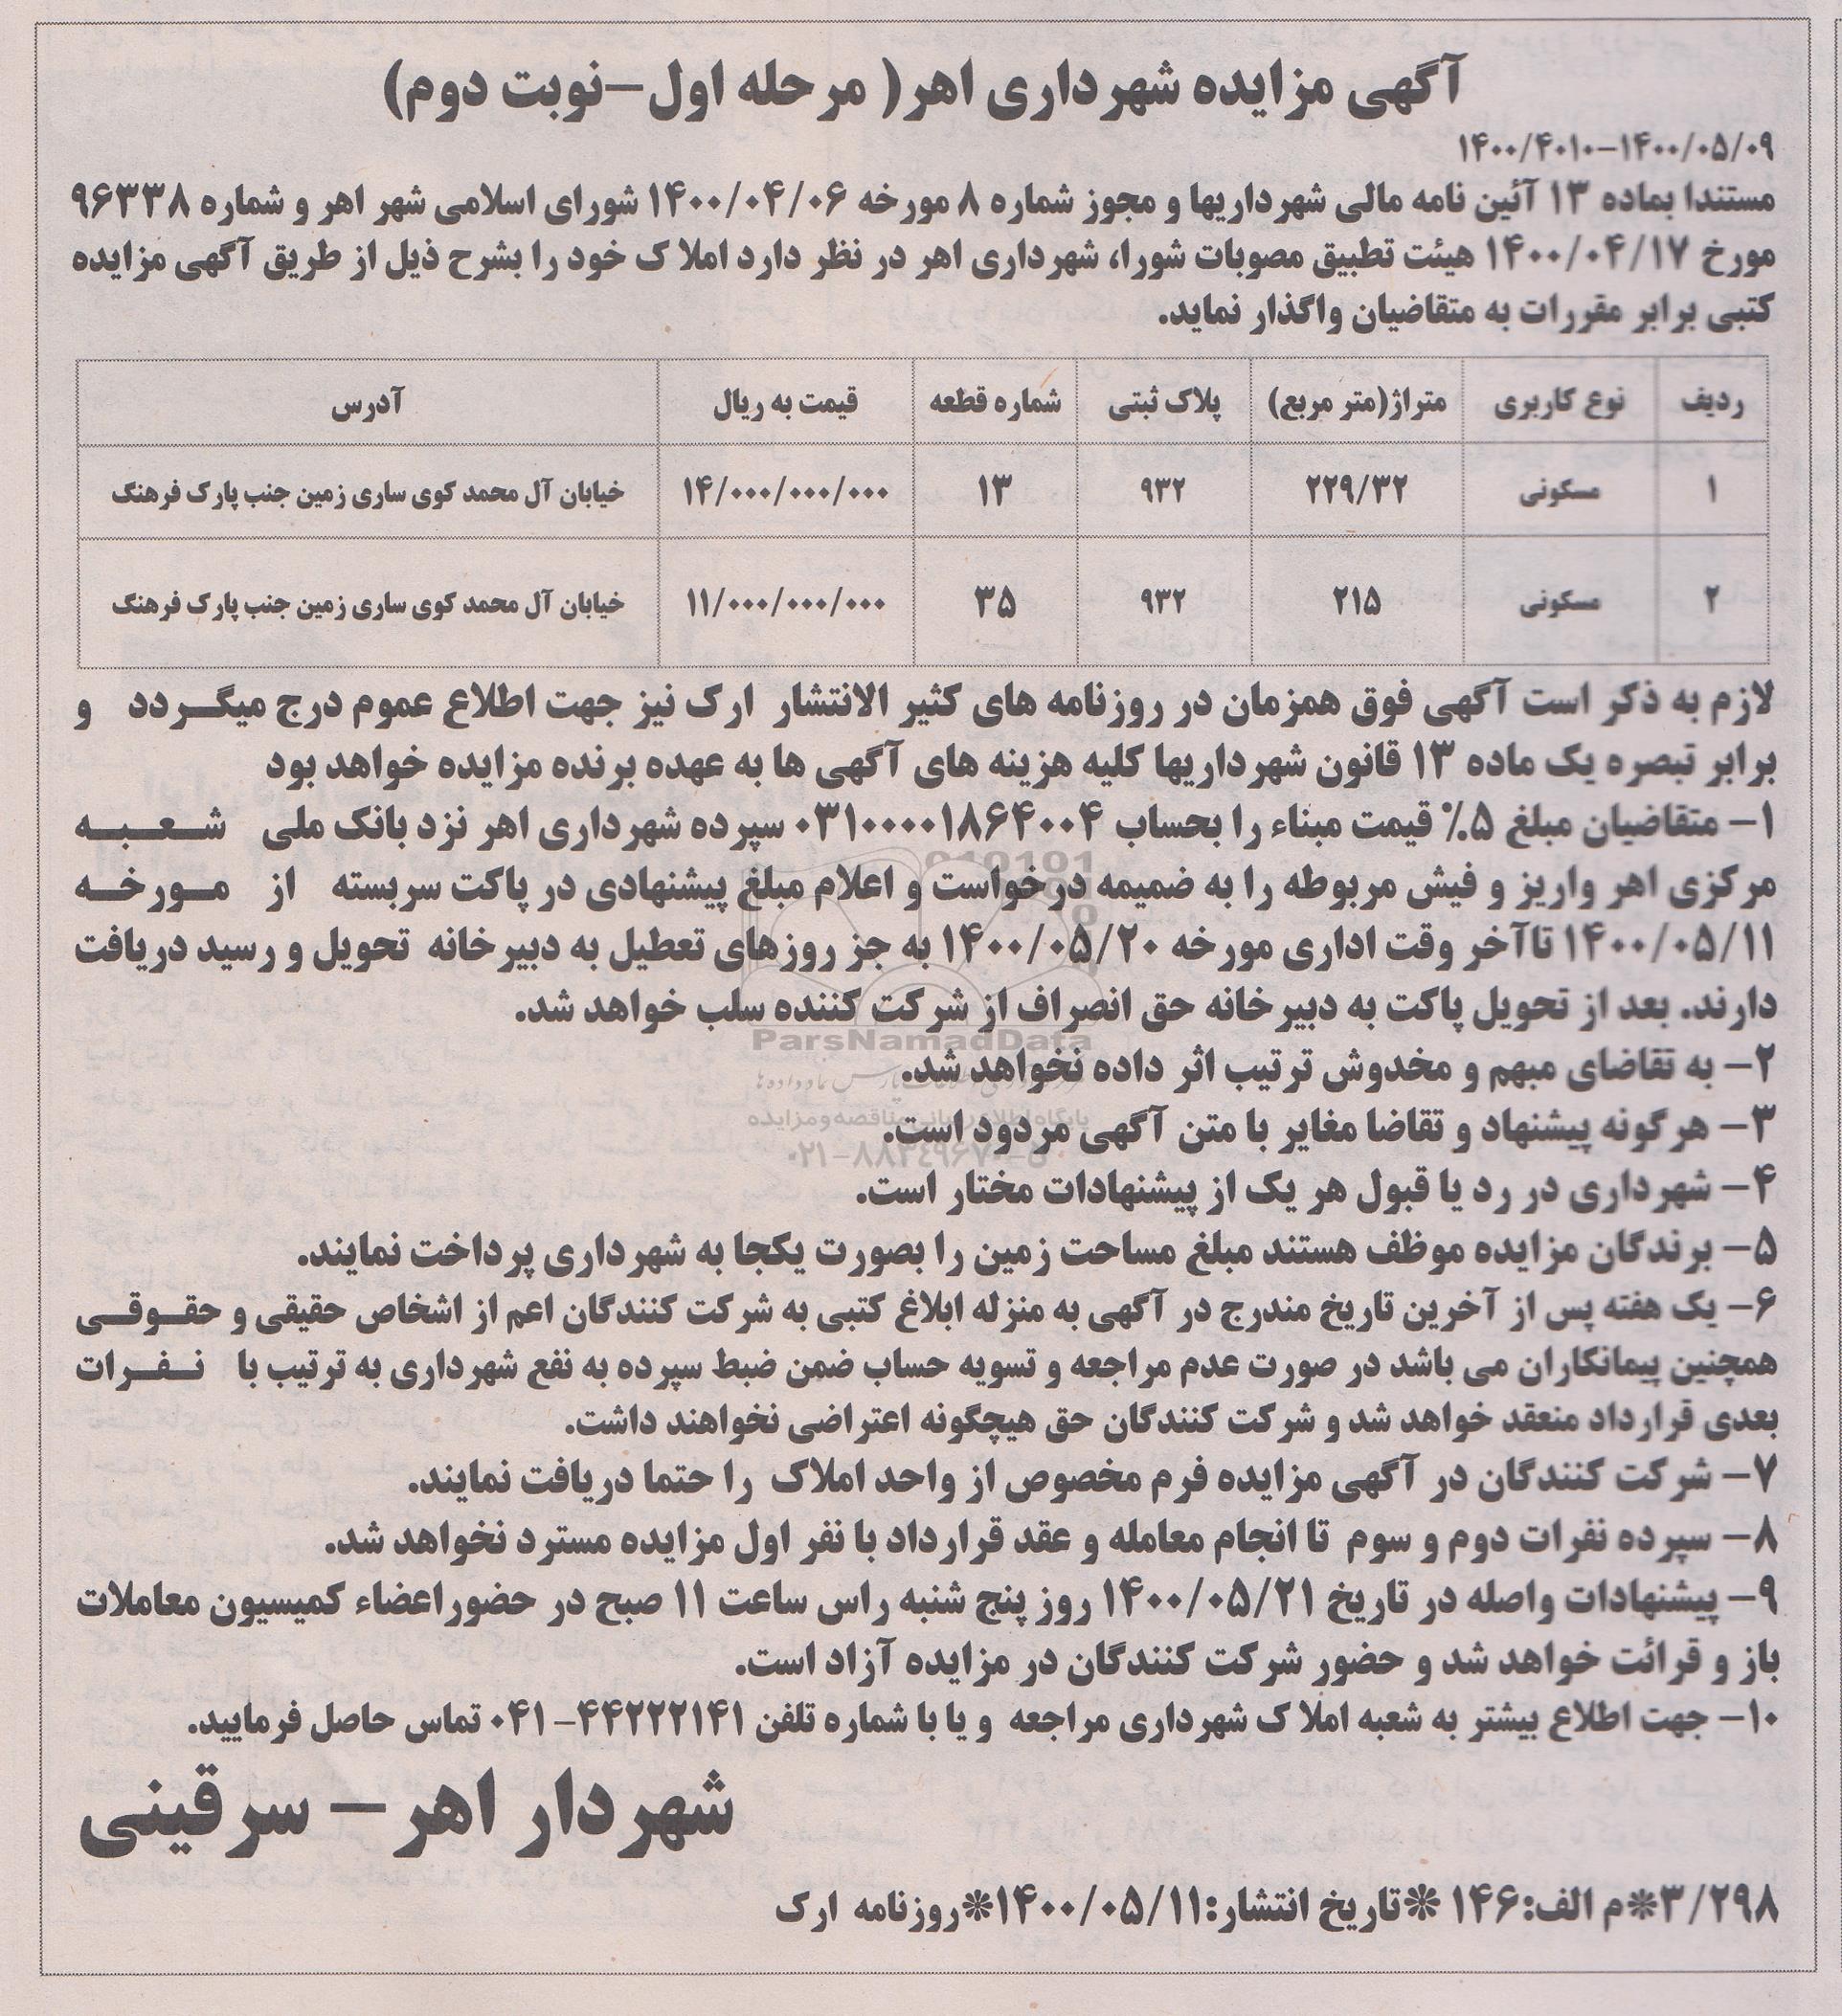 آگهی مزایده شهرداری اهر( مرحله اول-نوبت دوم)
۱۴۰۰/۴۰۱۰-۱۴۰۰/۰۵/۰۹
مستندا بماده ۱۳ آئین نامه مالی شهرداریها و مجوز شماره ۸ مورخه ۱۴۰۰/۰۴/۰۶ شورای اسلامی شهر اهر و شماره ۹۶۳۳۸
مورخ ۱۴۰۰/۰۴/۱۷ هیئت تطبیق مصوبات شورا، شهرداری اهر در نظر دارد املاک خود را بشرح ذیل از طریق آگهی مزایده
کتبی برابر مقررات به متقاضیان واگذار نماید.
ردیف نوع کاربری متراژ(متر مربع) پلاک ثبتی شماره قطعه قیمت به ریال آدرس
۱ مسکونی ۲۲۹/۳۲ ۹۳۲ ۱۳ ۱۴/۰۰۰/۰۰۰/۰۰۰ خیابان آل محمد کوی ساری زمین جنب پارک فرهنگ
۲ مسکونی ۲۱۵ ۹۳۲ ۳۵ ۱۱/۰۰۰/۰۰۰/۰۰۰ خیابان آل محمد کوی ساری زمین جنب پارک فرهنگ
لازم به ذکر است آگهی فوق همزمان در روزنامه های کثیر الانتشار ارک نیز جهت اطلاع عموم درج میگردد و
برابر تبصره یک ماده ۱۳ قانون شهرداریها کلیه هزینه های آگهی ها به عهده برنده مزایده خواهد بود
۱- متقاضیان مبلغ ۵٪ قیمت مبناء را بحساب ۰۳۱۰۰۰۰۱۸۶۴۰۰۴ سپرده شهرداری اهر نزد بانک ملی شعبه
مرکزی اهر واریز و فیش مربوطه را به ضمیمه درخواست و اعلام مبلغ پیشنهادی در پاکت سربسته از مورخه
۱۴۰۰/۰۵/۱۱ تاآخر وقت اداری مورخه ۱۴۰۰/۰۵/۲۰ به جز روزهای تعطیل به دبیرخانه تحویل و رسید دریافت
دارند. بعد از تحویل پاکت به دبیرخانه حق انصراف از شرکت کننده سلب خواهد شد.
ParsNamadData
۲- به تقاضای مبهم و مخدوش ترتیب اثر داده نخواهد شد.
۳- هرگونه پیشنهاد و تقاضا مغایر با متن آگهی مردود است.
۴- شهرداری در رد یا قبول هر یک از پیشنهادات مختار است.
۵- برندگان مزایده موظف هستند مبلغ مساحت زمین را بصورت یکجا به شهرداری پرداخت نمایند.
۶- یک هفته پس از آخرین تاریخ مندرج در آگهی به منزله ابلاغ کتبی به شرکت کنندگان اعم از اشخاص حقیقی و حقوقی
همچنین پیمانکاران می باشد در صورت عدم مراجعه و تسویه حساب ضمن ضبط سپرده به نفع شهرداری به ترتیب با نفرات
بعدی قرارداد منعقد خواهد شد و شرکت کنندگان حق هیچگونه اعتراضی نخواهند داشت.
۷- شرکت کنندگان در آگهی مزایده فرم مخصوص از واحد املاک را حتما دریافت نمایند.
۸- سپرده نفرات دوم و سوم تا انجام معامله و عقد قرارداد با نفر اول مزایده مسترد نخواهد شد.
۹- پیشنهادات واصله در تاریخ ۱۴۰۰/۰۵/۲۱ روز پنج شنبه راس ساعت ۱۱ صبح در حضوراعضاء کمیسیون معاملات
باز و قرائت خواهد شد و حضور شرکت کنندگان در مزایده آزاد است.
۱۰- جهت اطلاع بیشتر به شعبه املاک شهرداری مراجعه و یا با شماره تلفن ۴۴۲۲۲۱۴۱-۰۴۱ تماس حاصل فرمایید.
شهردار اهر - سرقینی
۳/۲۹۸*م الف:۱۴۶ *تاریخ انتشار:۱۴۰۰/۰۵/۱۱*روزنامه ارک